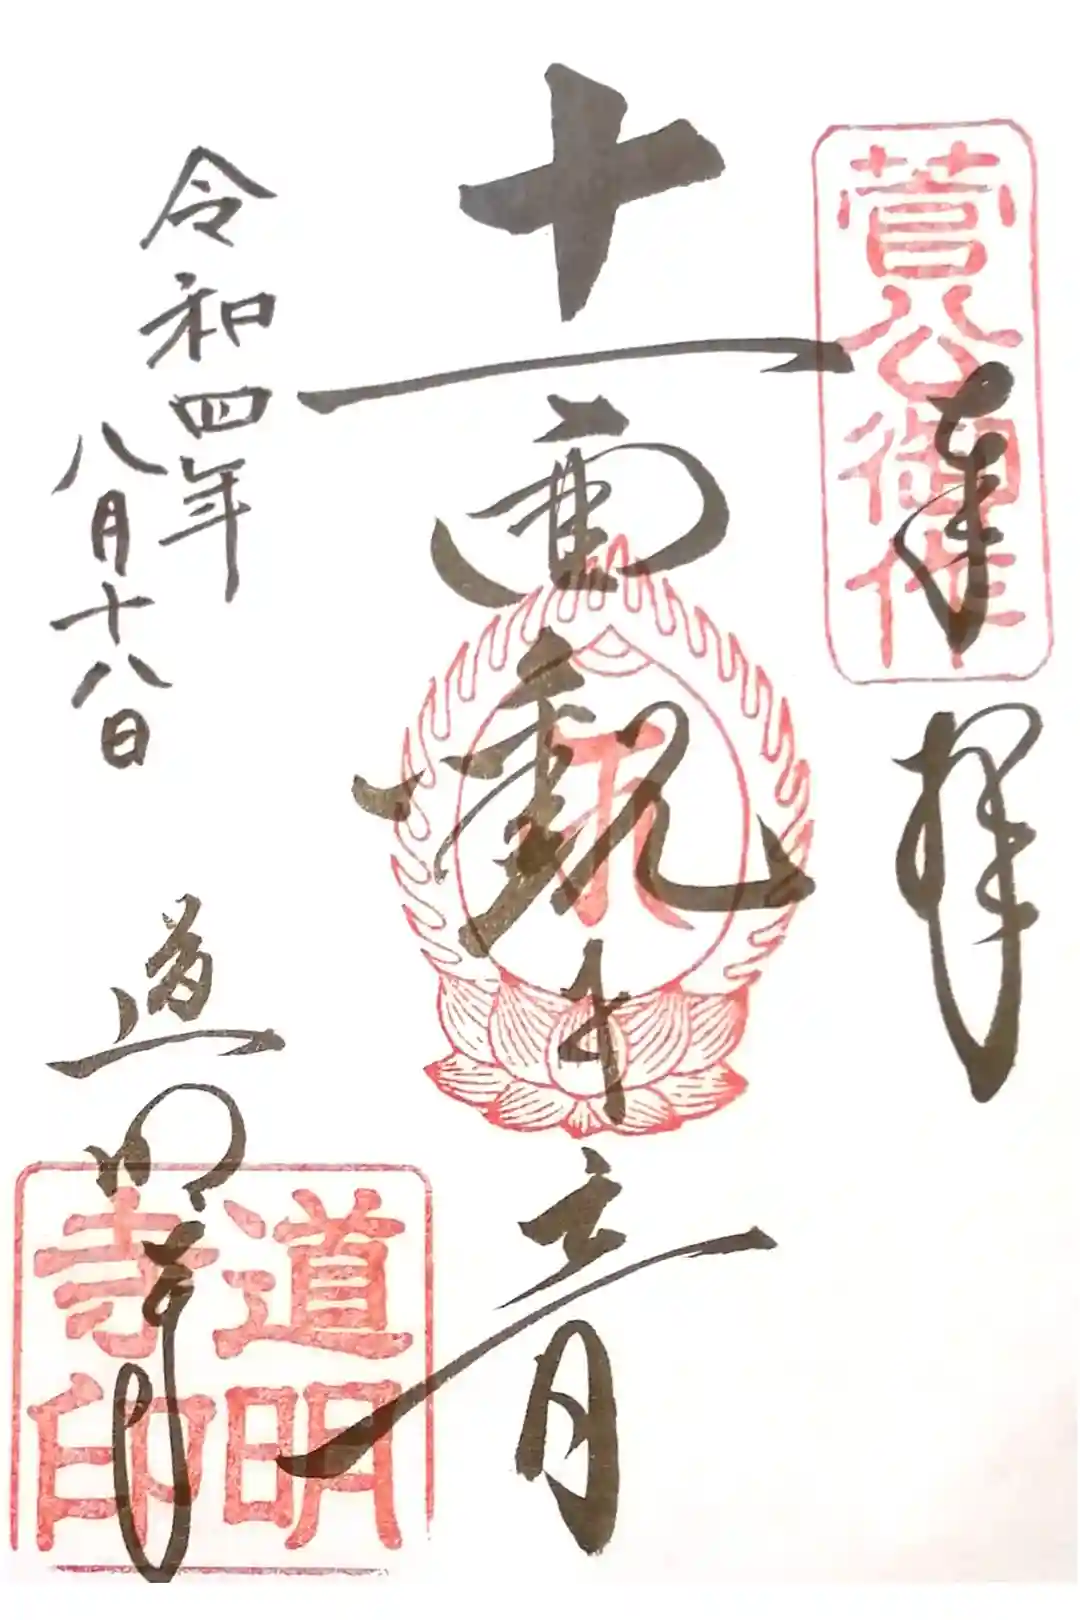 菅公御作
奉拝
十一面觀世音
令和四年
八月十八日
道明寺
道明
寺印